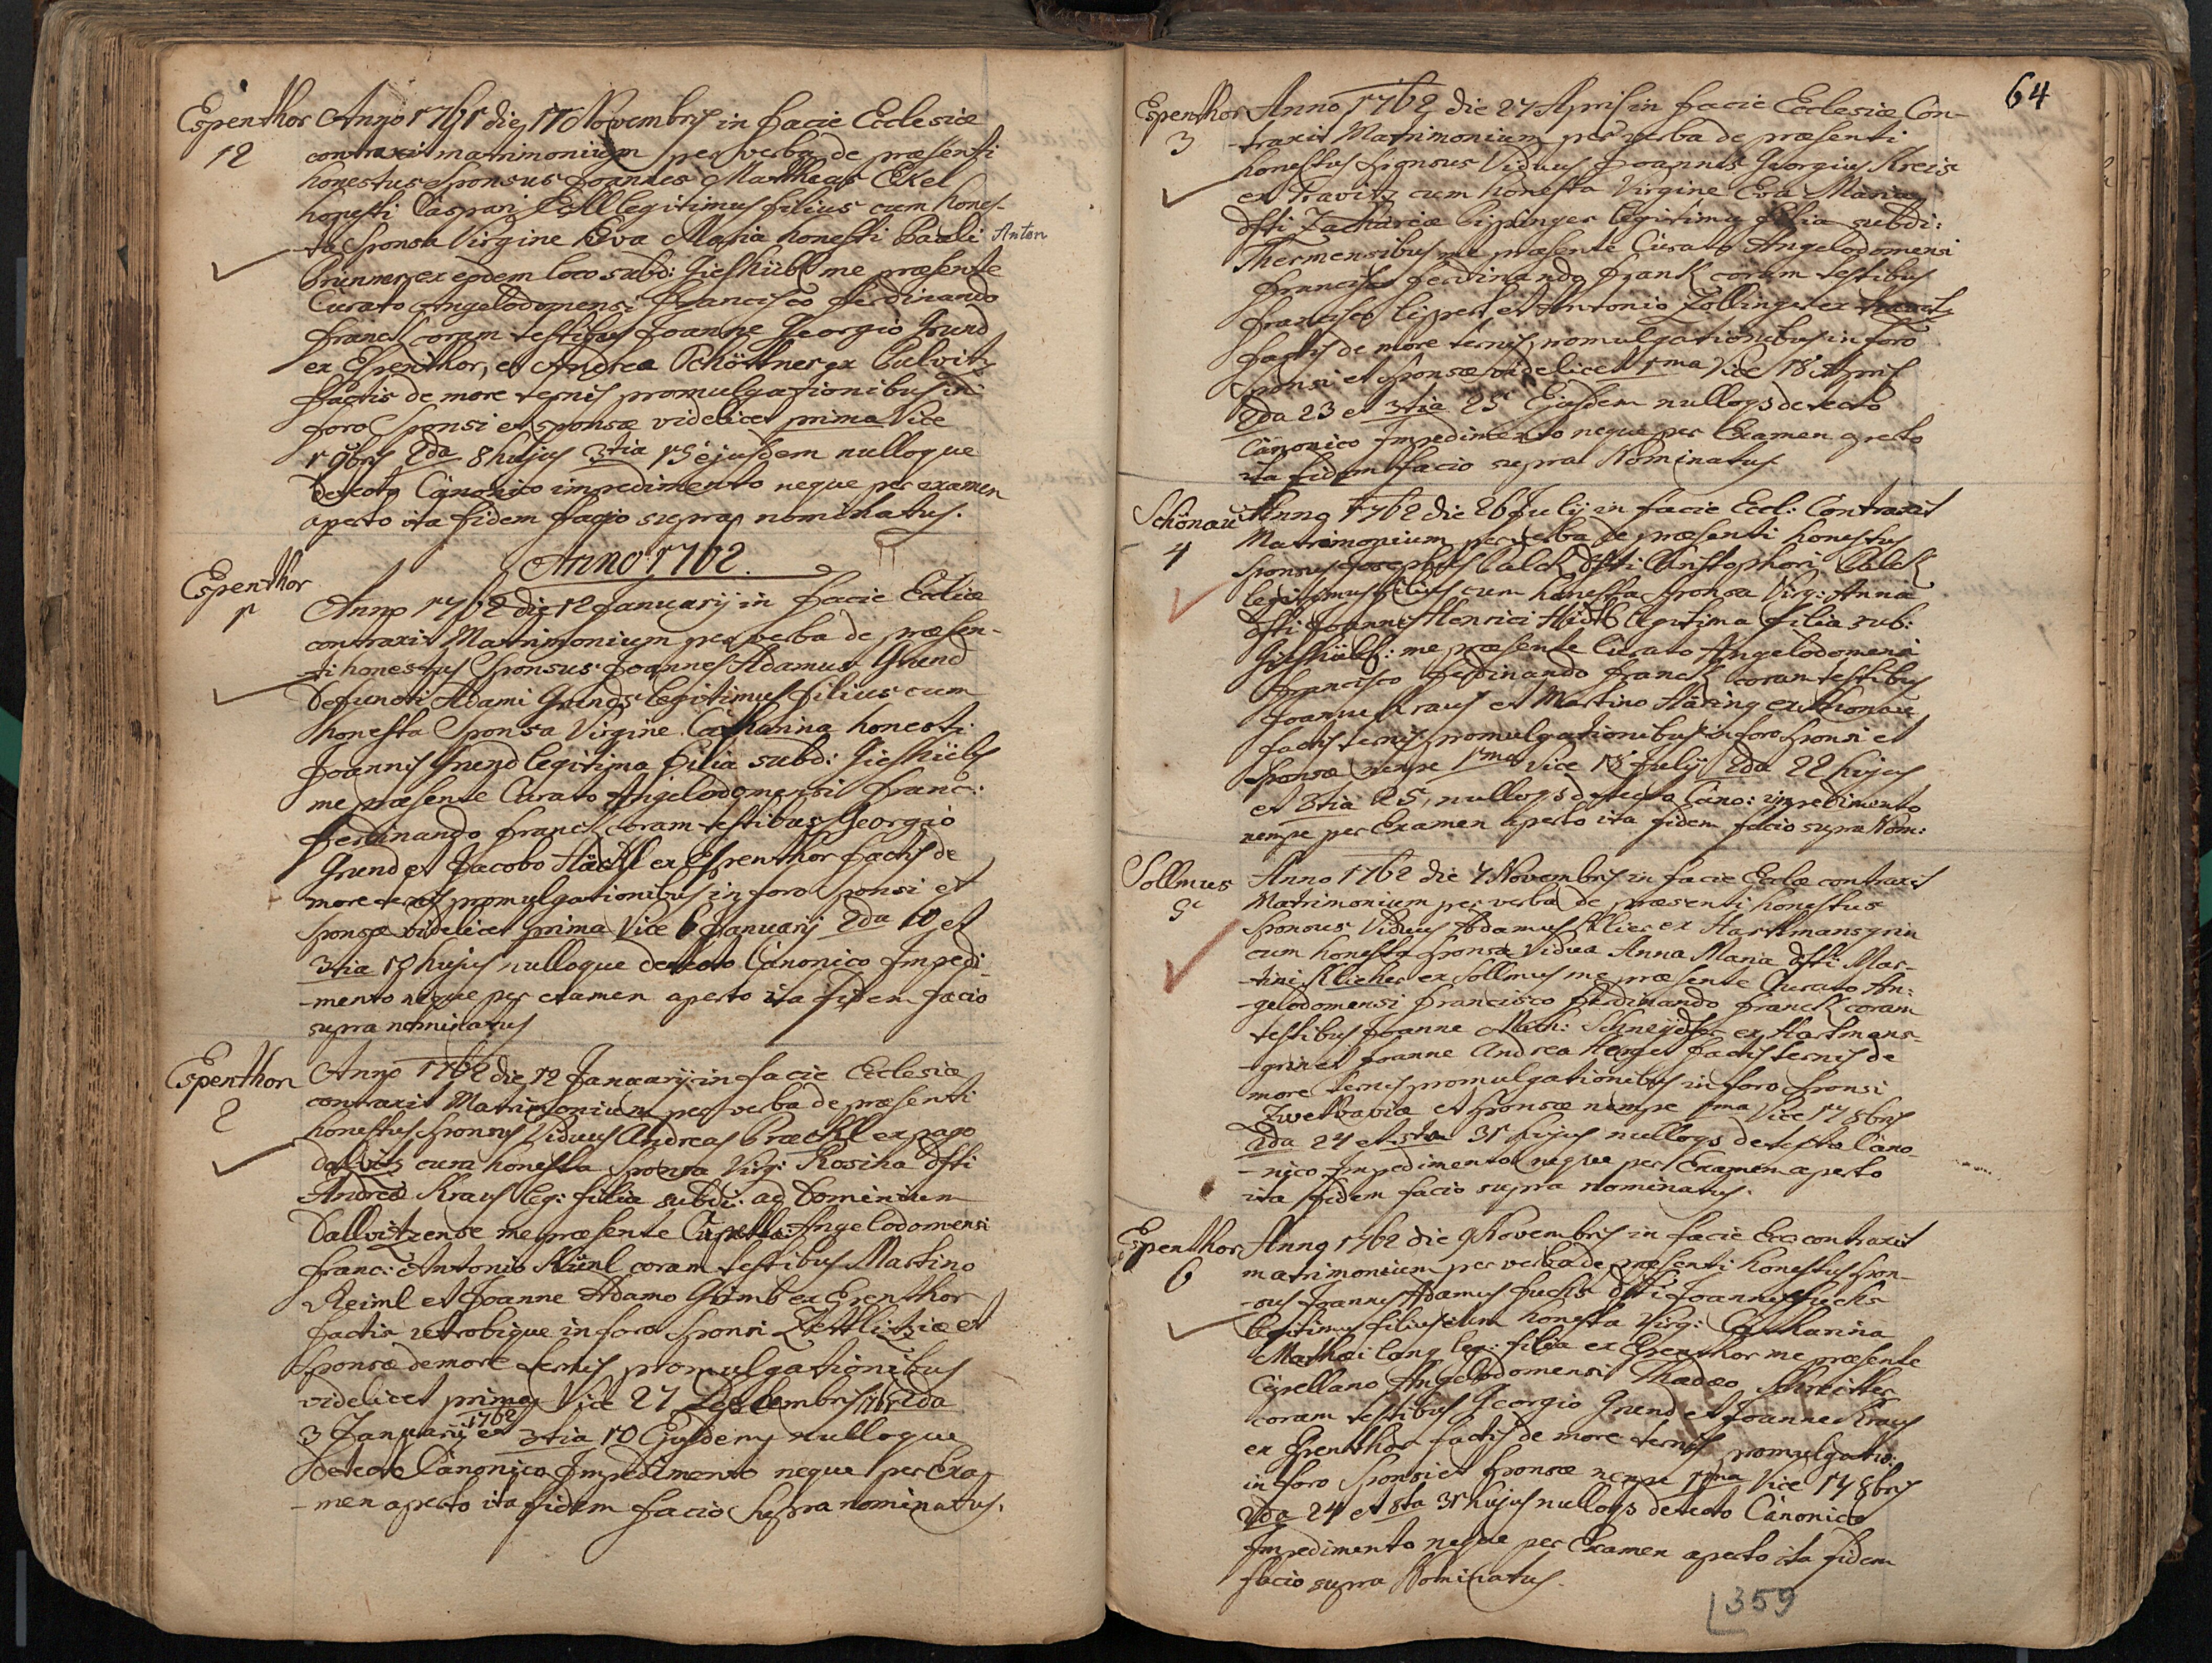 Espenthor Anno 1761 die 17 Novembris in facie Ecclesiæ
12 contraxit matrimonium per verba de præsenti
honestus Sponsus Joannes Mattheas Ekel
honesti Caspari Ekll legitimus filius cum hones-
ta Sponsa Virgine Eva Maria honesti Pauli Anton
Brünner ex eodem loco subd: Gieshübl me præsente
Curato Angelodomensi Francisco Ferdinando
Franck coram testibus Joanne Georgio Grund
ex Espenthor, et Andrea Schöttner ex
factis de more ternis promulgationibus in
foro Sponsi et sponsæ videlicet prima Vice
1 9bris 2da 8 hujus 3tia 15 ejusdem nulloque
detecto Canonico impedimento neque per examen
aperto ita fidem facio supra nominatus.
Anno 1762.
Espenthor
1
Anno 1762 die 12 Januarij in facie Eccliæ
contraxit Matrimonium per verba de præsen-
-ti honestus Sponsus Joannes Adamus Grund
Defuncti Adami Grunds legitimus filius cum
honesta Sponsa Virgine Catharina honesti
Joannis Grund legitima filia subd: Gieshübl
me præsente Curato Angelodomensi Franc:
Ferdinando Franck coram testibus Georgio
Grund et Jacobo Häckl ex Espenthor factis de
more ternis promulgationibus in foro Sponsi et
Sponsæ videlicet prima Vice 6 Januarij 2da 10 et
3tia hujus nulloque detecto Canonico Impedi-
-mento neque per examen aperto ita fidem facio
supra nominatus
Espenthor Anno 1762 die 12 Januarij in facie Ecclesiæ
2 contraxit Matrimonium per verba de præsenti
honestus Sponsus Viduus Andreas ex pago
cum honesta Sponsa Virg: Rosina dfti
Andreæ Kraus leg: filia subdi: ad Dominium
Dallvitzense me præsente Capella: Angelodomensi
Franc: Antonio Künl coram testibus Martino
Reiml et Joanne Adamo Grimb ex Espenthor
factis utrobique in foro Sponsi Zettlitziæ et
Sponsæ de more ternis promulgationibus
videlicet prima Vice 27 Decembris 2da
3 Januarij 1762 et 3tia 10 Ejusdem nulloque
detecto Canonico Impedimento neque per Exa-
-men aperto ita fidem facio Supra nominatus.
64
Espenthor Anno 1762 die 27 Aprilis in facie Ecclesiæ Con-
3 -traxit Matrimonium per verba de præsenti
honestus Sponsus Viduus Joannes Georgius Kreis
ex cum honesta Virgine Eva Maria
dfti Zachariæ Lippinger legitima filia subdi:
Thermensibus me præsente Curato Angelodomensi
Francisco Ferdinando Frank coram testibus
Francisco Lippert et Antonio Zollinger ex
factis de more ternis promulgationibus in foro
Sponsi et Sponsæ videlicet 1ma Vice 18 Aprilis
2da 23 et 3tia 25 Ejusdem nulloqs detecto
Canonico Impedimento neque per Examen aperto
ita fidem facio supra Nominatus.
Schönau Anno 1762 die 26 Julij in facie Eccl: Contraxit
4 Matrimonium per verba de præsenti honestus
Sponsus Josephus Palck dfti Christophori Palck
legitimus filius cum honesta Sponsa Virg: Anna
dfti Joannis Henrici legitima filia sub:
Gieshübl: me præsente Curato Angelodomensi
Francisco Ferdinando Franck coram testibus
Joanne Kraus et Martino Häring ex Schönau
factis ternis promulgationibus in foro Sponsi et
Sponsæ nempe 1ma Vice 18 Julij 2da 22 hujus
et 3tia 25, nulloqs detecto Cano: impedimento
nempe per Examen aperto ita fidem facio supra Nom:
Sollmus Anno 1762 die 4 Novembris in facie Ecclæ contraxit
5 Matrimonium per verba de præsenti honestus
Sponsus Viduus Adamus Klier ex Hartmansgrün
cum honesta sponsa Vidua Anna Maria dfti Mar-
-tini Klieher ex Sollmus me præsente Curato An:
-gelodomensi Francisco Ferdinando Franck coram
testibus Joanne Math: Schneÿder ex Hartmans-
-grün et Joanne Andrea Herget factis ternis de
more ternis promulgationibus in foro Sponsi
et Sponsæ nempe 1ma Vice 17 8bris
2da 24 et 3tia 31 hujus nulloqs detecto Cano-
-nico Impedimento neque per Examen aperto
ita fidem facio supra nominatus.
Espenthor Anno 1762 die 9 Novembris in facie Ecc: contraxit
6 matrimonium per verba de præsenti honestus Spon-
-sus Joannes Adamus Fuchs dfti Joannis Fuchs
legitimus filius cum honesta Virg: Catharina
Mathæi Lang leg: filia ex Espenthor me præsente
Capellano Angelodomensi Thadæo Schreitter
coram testibus Georgio Grund et Joanne Kraus
ex Espenthor factis de more ternis promulgatio:
in foro Sponsi et Sponsæ nempe 1ma Vice 17 8bris
2da 24 et 3tia 31 hujus nulloqs detecto Canonico
Impedimento neque per Examen aperto ita fidem
facio supra Nominatus.
359